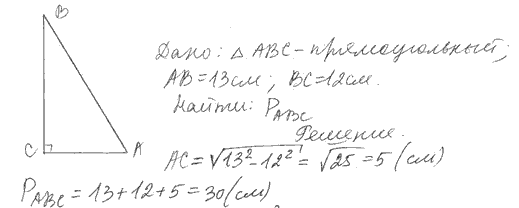 B
Дано: △ ABC - прямоугольный;
AB = 13 см; BC = 12 см.
Найти: P_ABC
Решение.
C A
AC = √13² - 12² = √25 = 5 (см)
P_ABC = 13 + 12 + 5 = 30 (см)